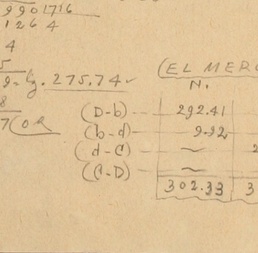 9901716
1264
4
5
9 = lg. 275.74
8
(EL MERC
N.
7(OR
(D-b) — 292.41
(b-d) — 9.92
(d-C) — ~
(C-D) — ~
302.33 3